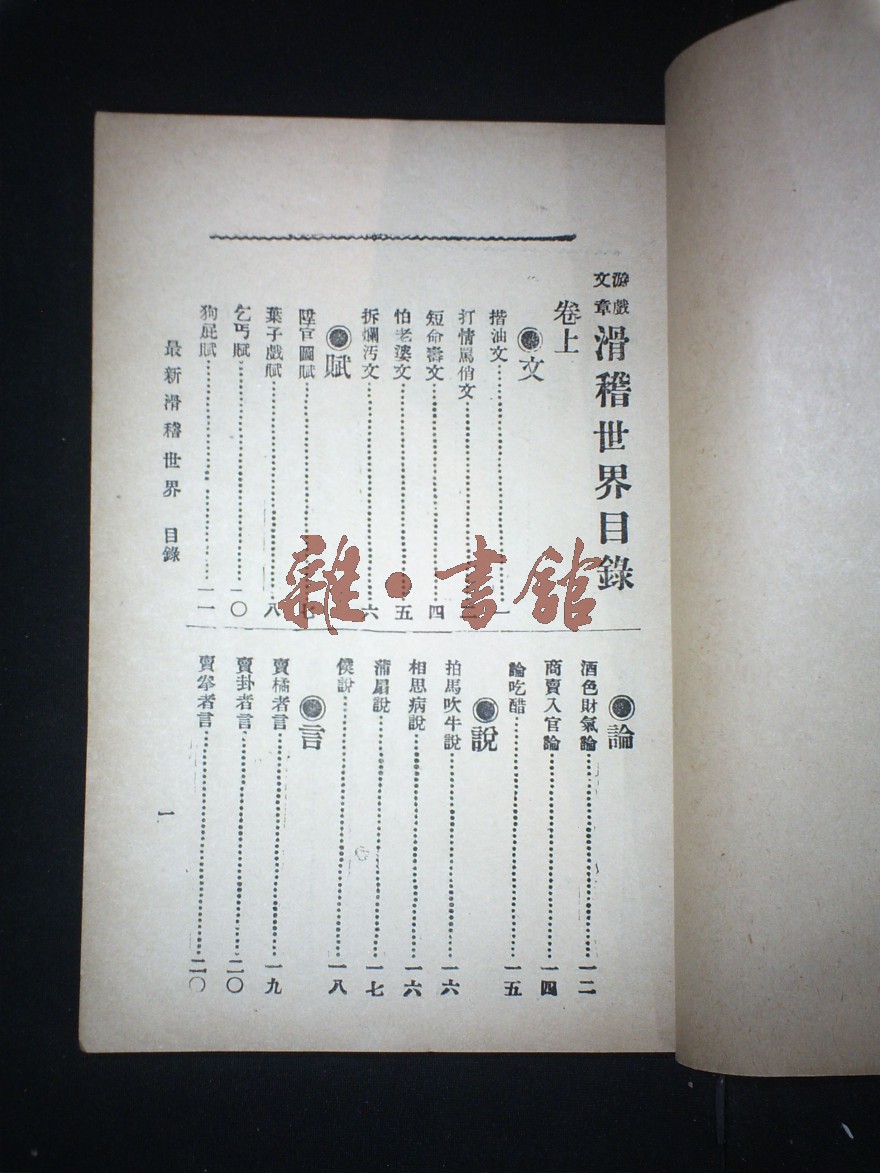 游戲文章 滑稽世界目錄
卷上
◉文
揩油文……一
打情罵俏文……二
短命壽文……四
怕老婆文……五
拆爛汚文……六
◉賦
陞官圖賦……七
葉子戲賦……八
乞丐賦……一〇
狗屁賦……一一
◉論
酒色財氣論……一二
商賣入官論……一四
論吃醋……一五
◉說
拍馬吹牛說……一六
相思病說……一六
蒲扇說……一七
僕說……一八
◉言
賣橘者言……一九
賣卦者言……二〇
賣拳者言……二〇
最新滑稽世界 目錄
一
雜·書館